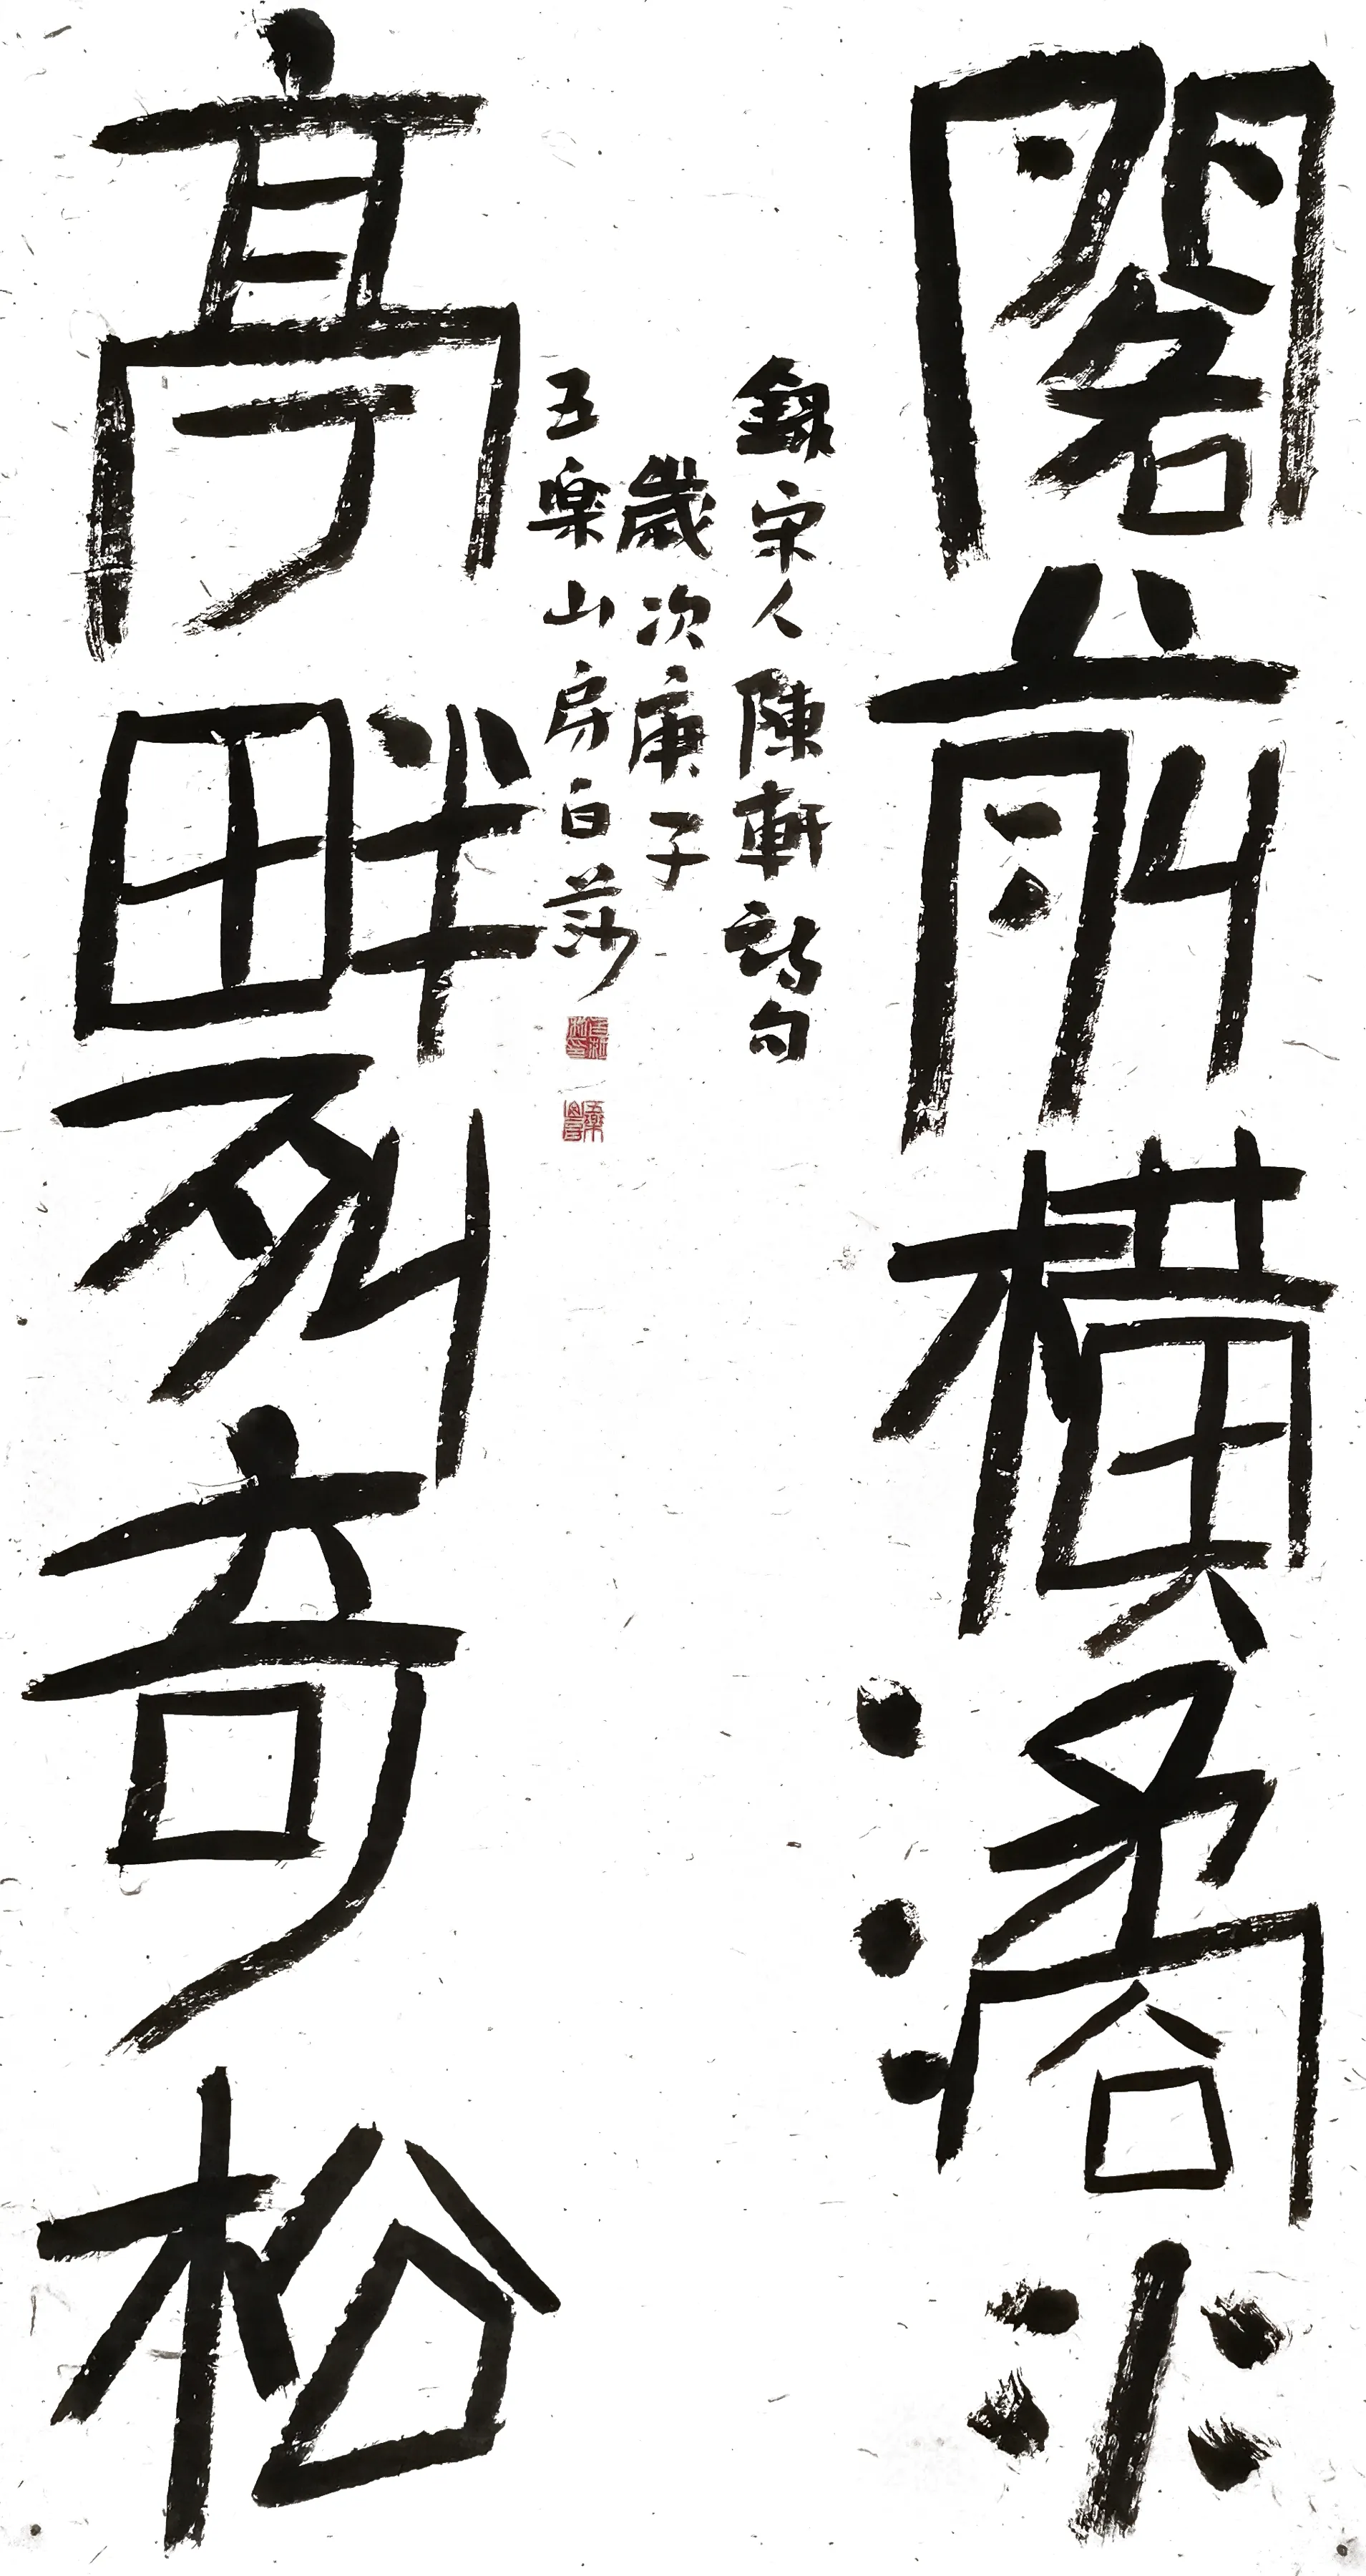 閣前橫潏水
亭畔列奇松
錄宋人陳軒詩句
歲次庚子
五樂山房白莎